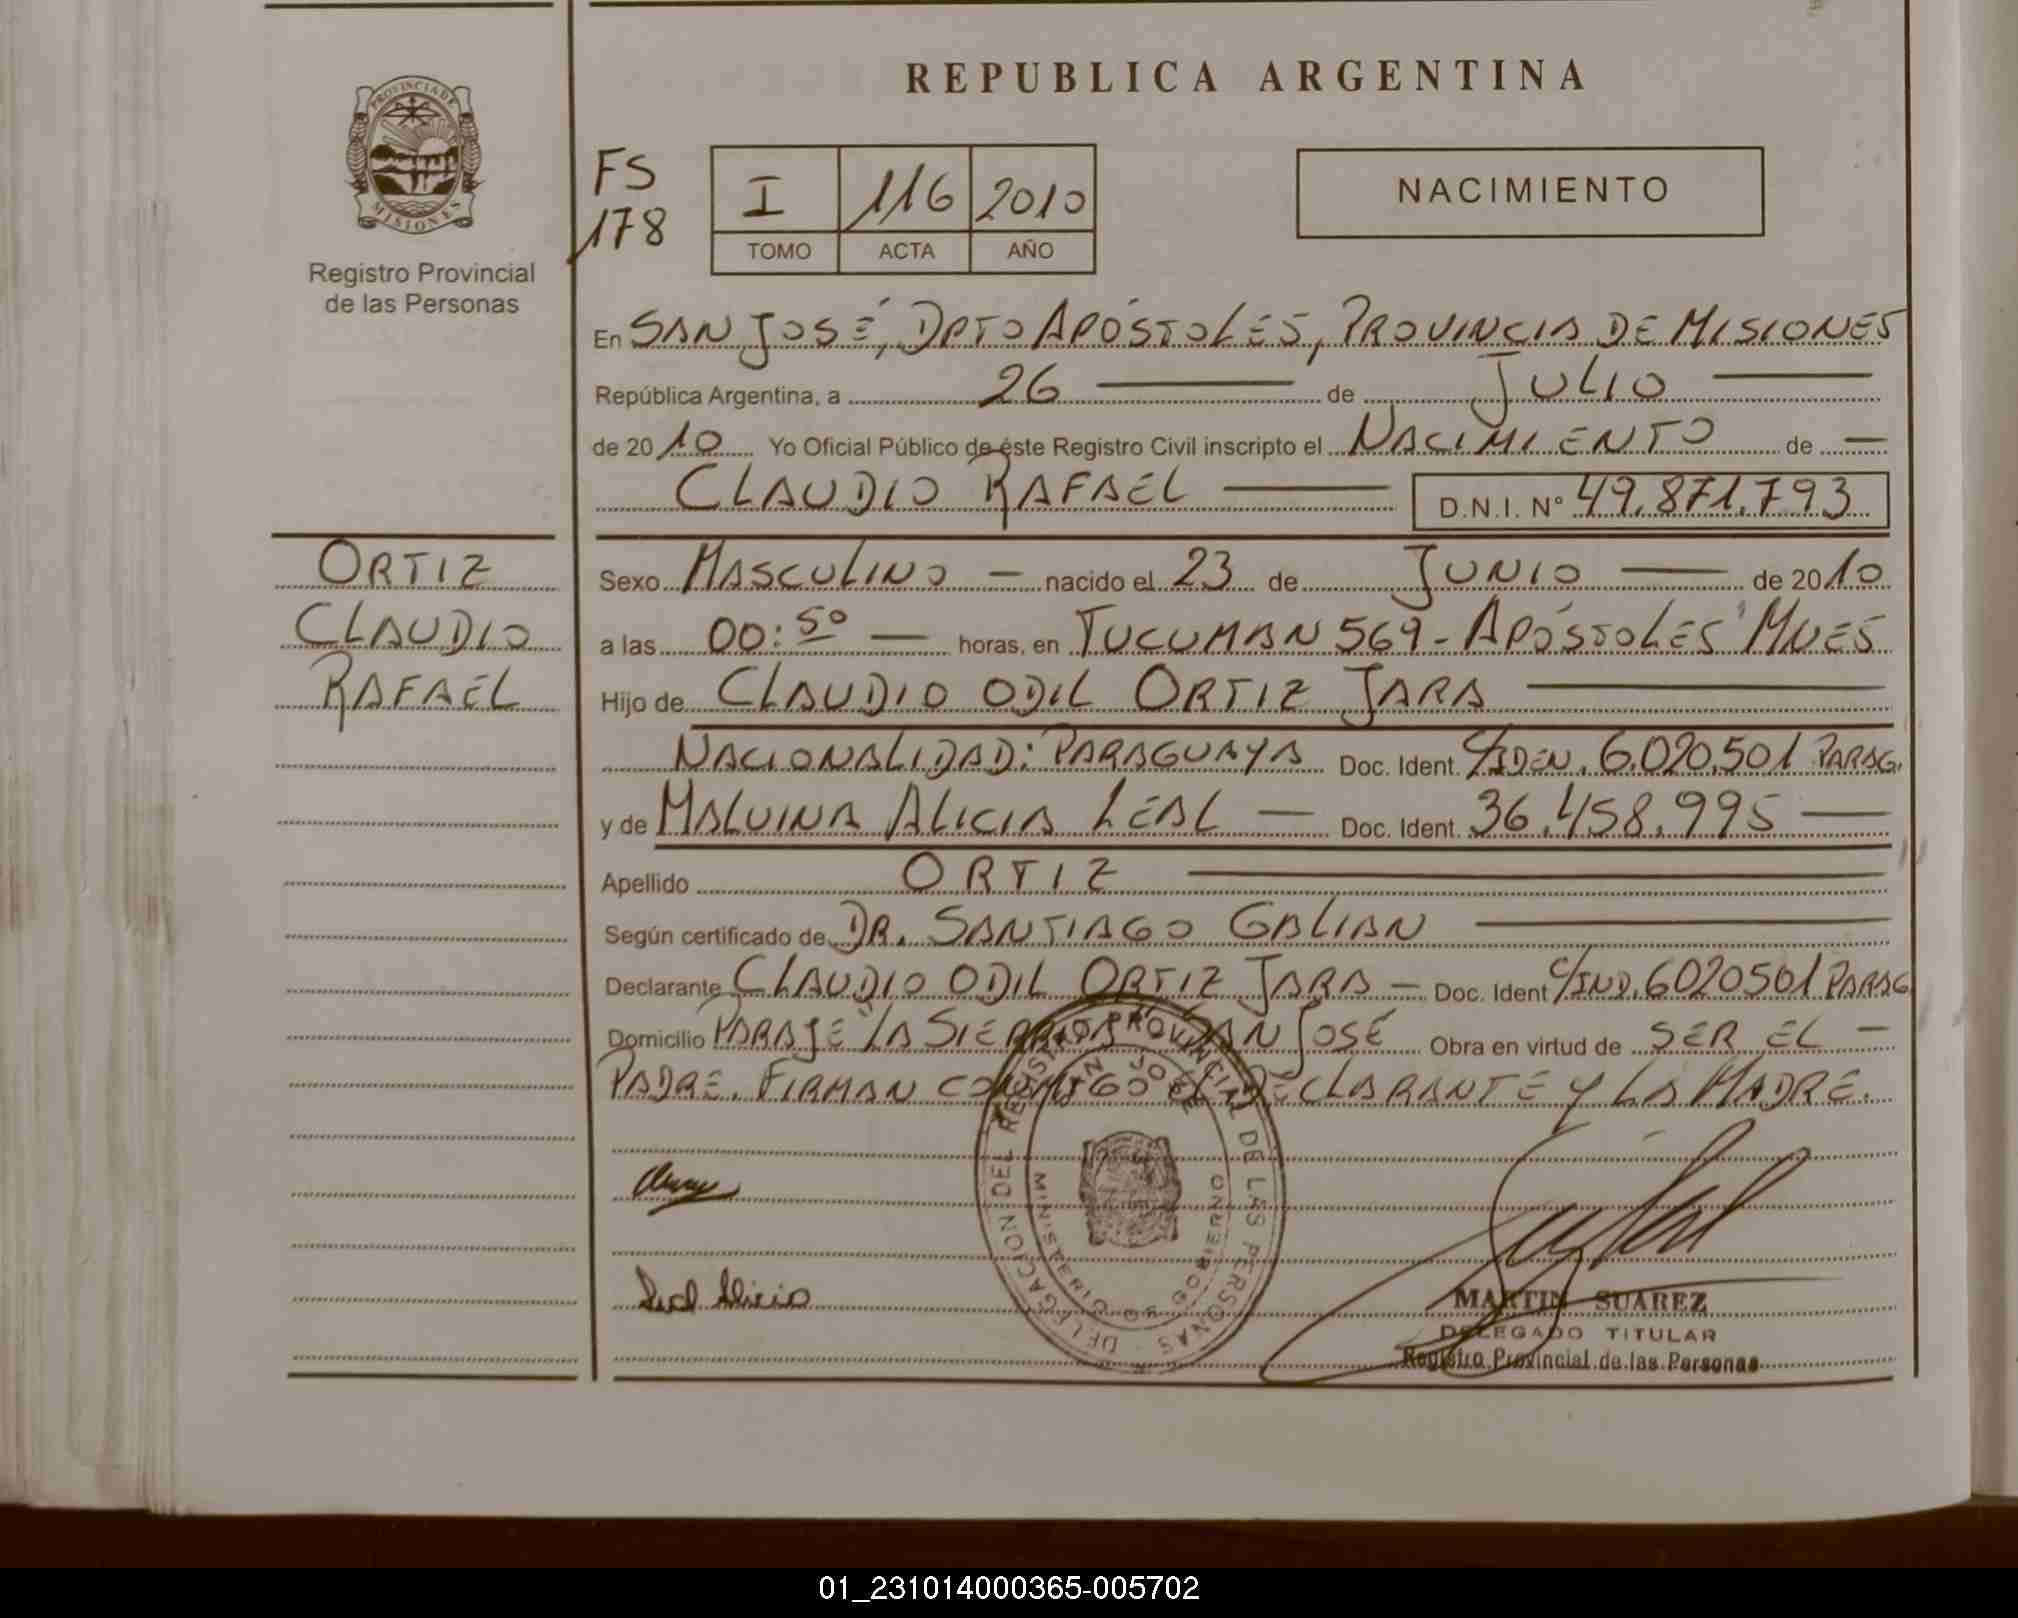 PROVINCIA DE
MISIONES
Registro Provincial
de las Personas
ORTIZ
CLAUDIO
RAFAEL
REPUBLICA ARGENTINA
FS
178
I 116 2010
TOMO ACTA AÑO
NACIMIENTO
En SAN JOSÉ, DPTO APÓSTOLES, PROVINCIA DE MISIONES
República Argentina, a 26 de JULIO
de 2010 Yo Oficial Público de éste Registro Civil inscripto el NACIMIENTO de
CLAUDIO RAFAEL D.N.I. N° 49.871.793
Sexo MASCULINO nacido el 23 de JUNIO de 2010
a las 00:50 horas, en TUCUMAN 569 - APÓSTOLES MNES
Hijo de CLAUDIO ODIL ORTIZ JARA
NACIONALIDAD: PARAGUAYA Doc. Ident. C/IDEN. 6.020.501 PARAG.
y de MALVINA ALICIA LEAL Doc. Ident. 36.458.995
Apellido ORTIZ
Según certificado de DR. SANTIAGO GALIAN
Declarante CLAUDIO ODIL ORTIZ JARA Doc. Ident C/IND. 6020501 PARAG
Domicilio PARAJE "LA SIERRITA" SAN JOSÉ Obra en virtud de SER EL
PADRE. FIRMAN CONMIGO EL DECLARANTE Y LA MADRE.
DELEGACION DEL REGISTRO PROVINCIAL DE LAS PERSONAS
SAN JOSE
MINISTERIO DE GOBIERNO
Leal Alicia
MARTIN SUAREZ
DELEGADO TITULAR
Registro Provincial de las Personas
01_231014000365-005702